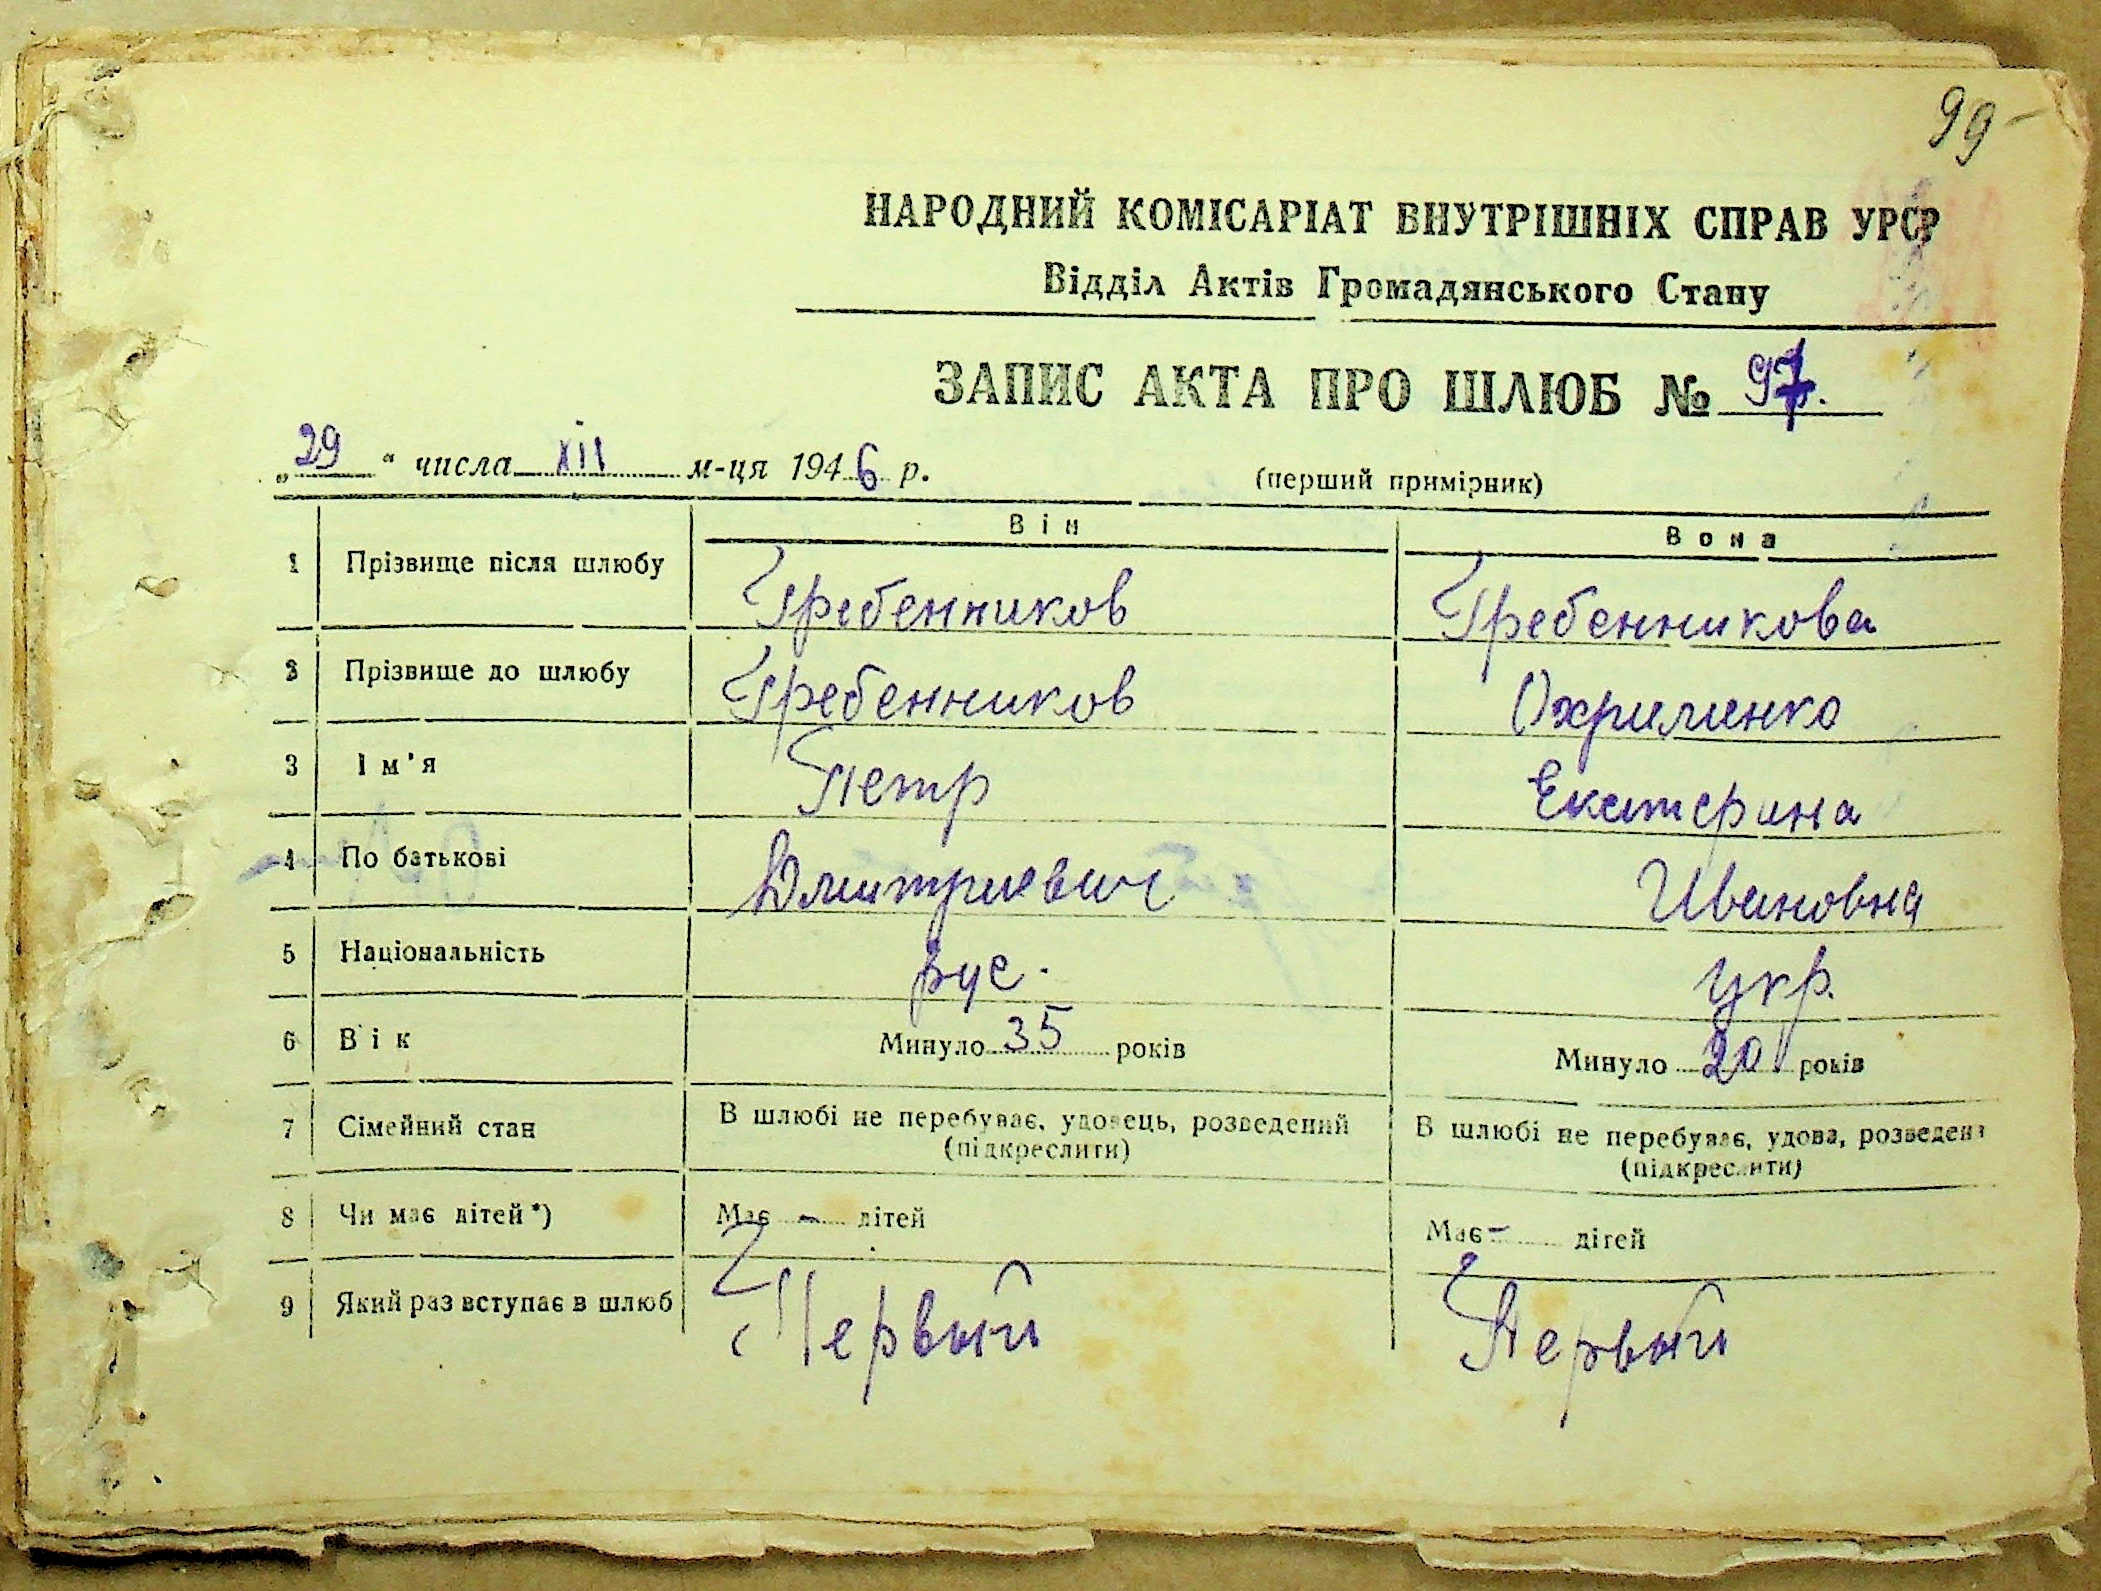 99
НАРОДНИЙ КОМІСАРІАТ ВНУТРІШНІХ СПРАВ УРСР
Відділ Актів Громадянського Стану
ЗАПИС АКТА ПРО ШЛЮБ № 97.
„29“ числа XII м-ця 1946 р.
(перший примірник)
Він Вона
1 Прізвище після шлюбу Гребенников Гребенникова
2 Прізвище до шлюбу Гребенников Охрименко
3 Ім'я Петр Екатерина
4 По батькові Дмитриевич Ивановна
5 Національність рус. укр.
6 Вік Минуло 35 років Минуло 20 років
7 Сімейний стан В шлюбі не перебуває, удовець, розведений (підкреслити) В шлюбі не перебуває, удова, розведена (підкреслити)
8 Чи має дітей*) Має - дітей Має - дітей
9 Який раз вступає в шлюб Первый Первый